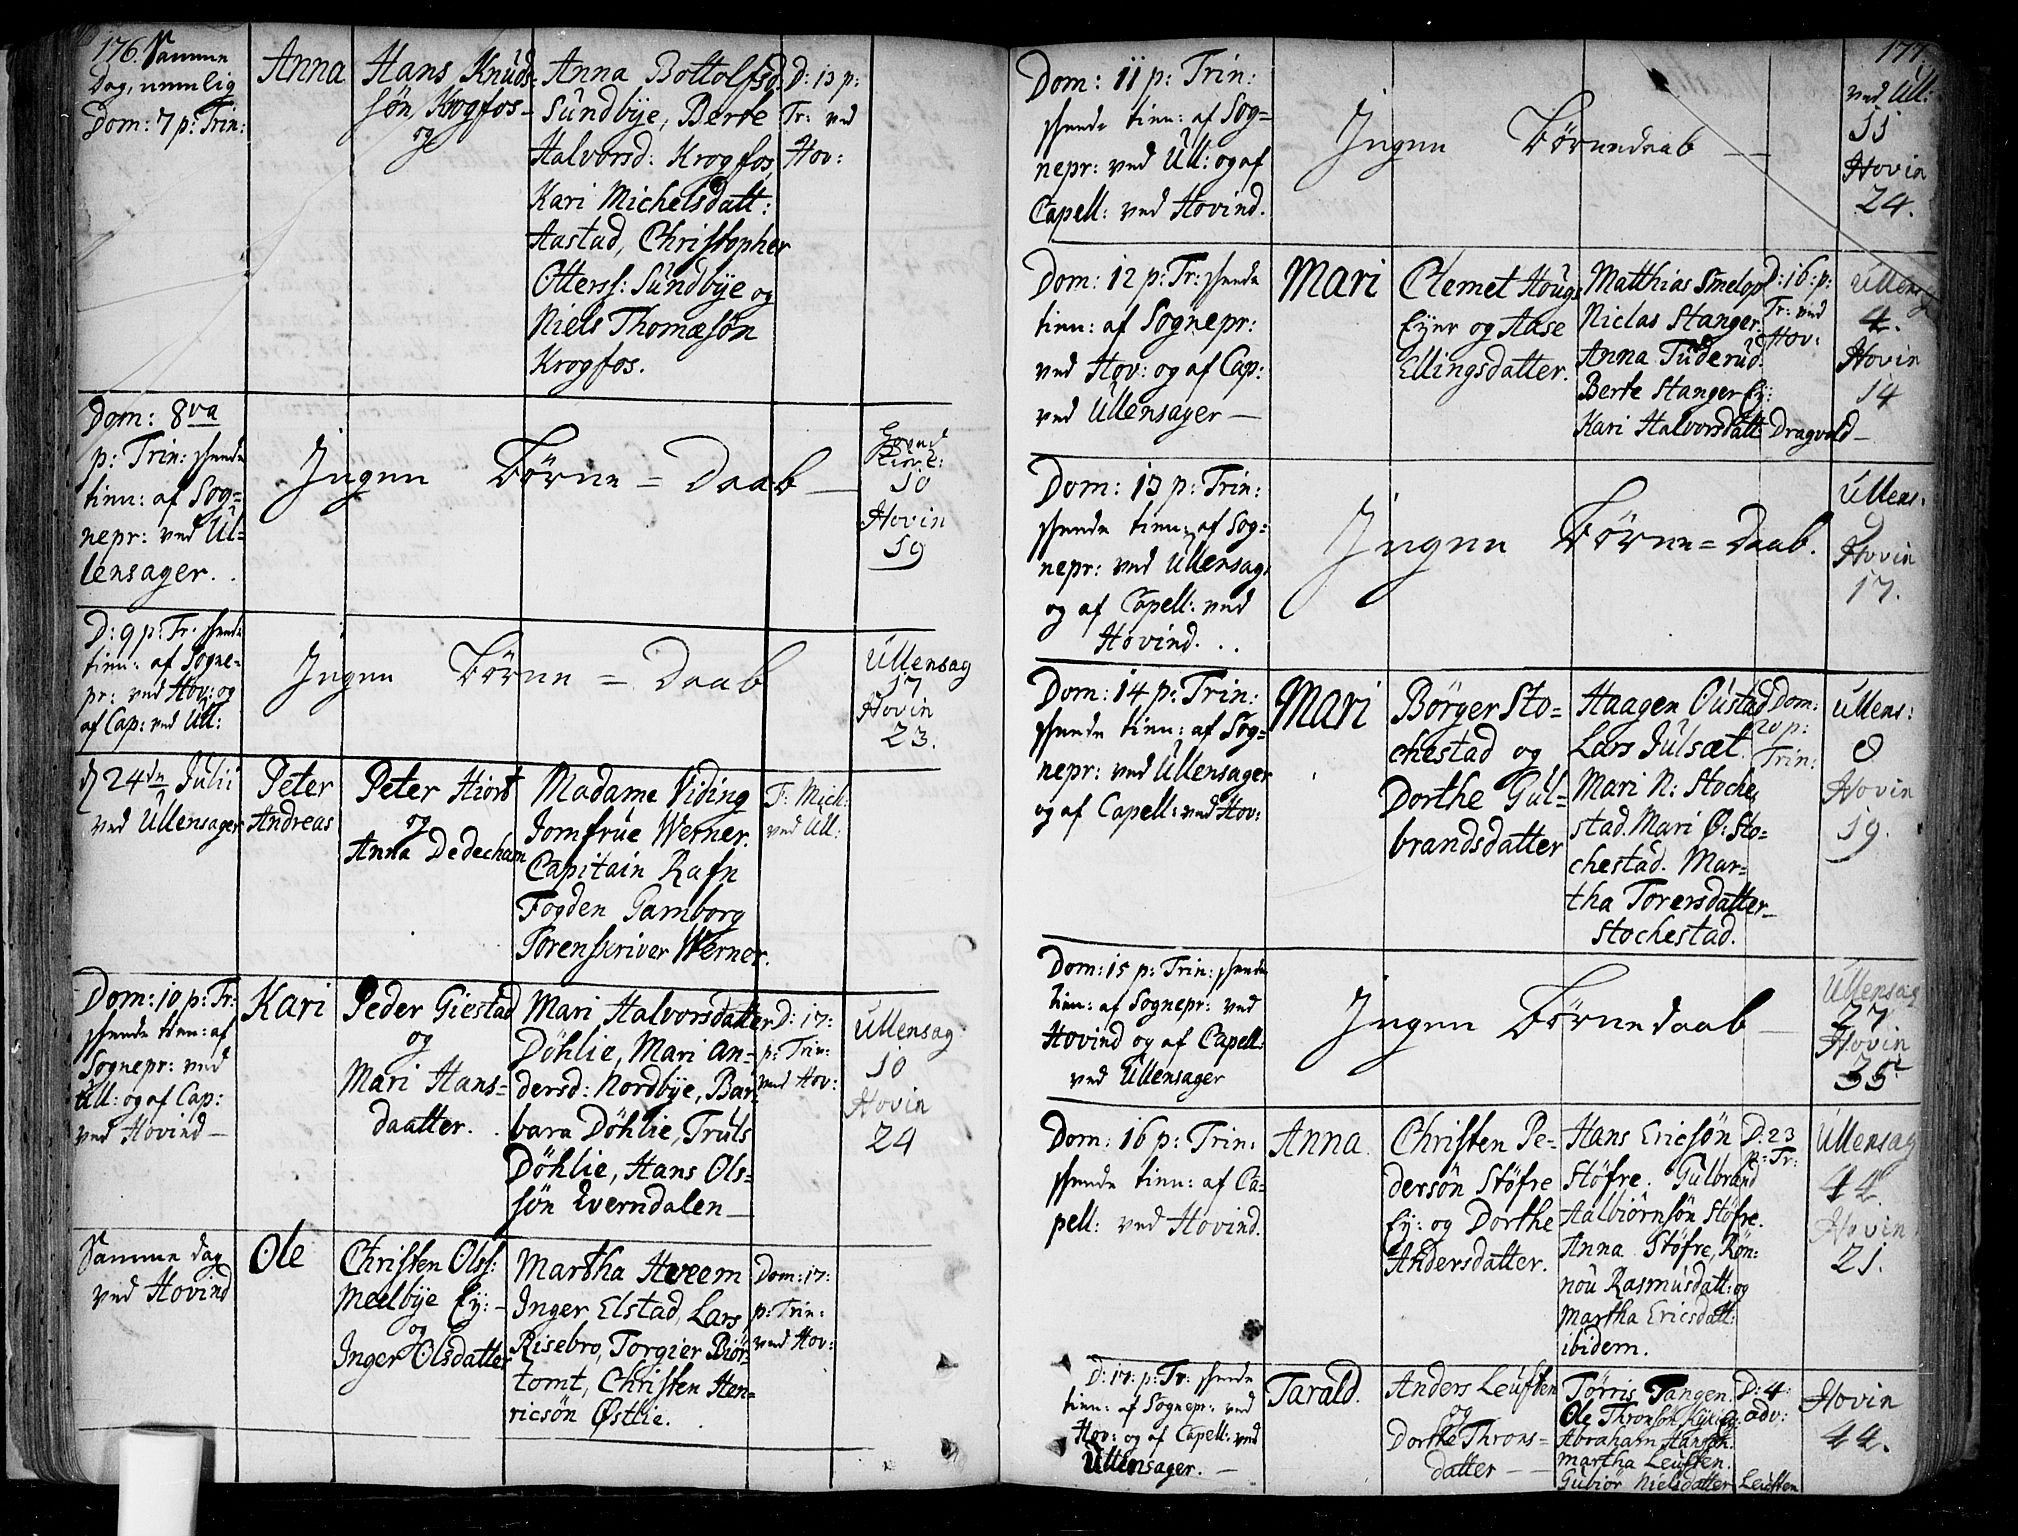 176. Samme
Dag, nemlig
Dom: 7 p: Trin:
Anna
Hans Knuds-
søn Krogfos-
og
Anna Bottolfsd:
Sundbÿe, Berte
Halvorsd: Krogfos,
Kari Michelsdatt:
Aastad, Christopher
Otterss: Sundbÿe og
Niels Thomæsøn
Krogfos.
D: 13 p:
Tr: ved
Hov:
Dom: 8va
p: Trin:
tien: af Sog=
nepr: ved Ul-
lensager.
Ingen Børne = Daab
10
Hovin
19
D: 9 p: Tr:
tien: af Sogne-
pr: ved Hov: og
af Cap: ved Ull:
Ingen Børne = Daab
Ullensag
17
Hovin
23.
24de Julii
ved Ullensager
Peter
Andreas
Peter Hiort
og
Anna Dedecham
Madame Viding
Jomfrue Werner.
Capitain Rafn
Fogden Gamborg
Sorenskriver Werner.
F: Mich:
ved Ull:
Dom: 10 p: Tr:
tien: af
Sognepr: ved
Ull: og af Cap:
ved Hovind
Kari
Peder Giestad
og
Mari Hans-
daatter.
Mari Halvorsdatter
Döhlie, Mari An-
dersd: Nordbÿe, Bar
bara Döhlie, Truls
Döhlie, Hans Ols-
søn Everndalen
D: 17:
p: Trin:
ved Hov:
Ullensag
10
Hovin
24
Samme Dag
ved Hovind
Ole
Christen Olss:
Meelbÿe Eÿ:
og
Inger Olsdatter
Martha Hveem
Inger Elstad, Lars
Risebro, Torgier Biör-
tomt, Christen Hen-
ricsön Østlie.
Dom: 17:
p: Trin:
ved Hov:
177.
Dom: 11 p: Trin:
tien: af Sog=
nepr: ved Ull: og af
Capell: ved Hovind.
Ingen Börnedaab
ved Ull:
11
Hovin
24.
Dom: 12 p: Tr:
tien: af Sognepr:
ved Hov: og af Cap:
ved Ullensager
Mari
Clemet Houg
Eÿer og Aase
Ellingsdatter.
Matthias Smelop
Niclas Stanger.
Anna Tuderud.
Berte Stanger Eÿ:
Kari Halvorsdatt: Dragvold
D: 16: p:
Tr: ved
Hov:
Ullensag
4.
Hovin
14
Dom: 13 p: Trin:
tien: af Sog=
nepr: ved Ullensag:
og af Capell: ved
Hovind.
Ingen Börne = Daab.
Ullens:
9
Hovin
17.
Dom: 14 p: Trin:
tien: af Sog=
nepr: ved Ullensager
og af Capell: ved Hov:
Mari
Börger Sto=
chestad og
Dorthe Gul=
brandsdatter
Haagen Oustad
Lars Julsæt.
Mari N: Stoche
stad. Mari Ø: Sto-
chestad. Mar-
tha Torersdatter
Stochestad.
Dom:
20 p:
Trin:
Ullens:
Hovin
19.
Dom: 15 p: Trin:
tien: af Sognepr: ved
Hovind og af Capell:
ved Ullensager
Ingen Börnedaab
Ullensag
27
Hovin
35
Dom: 16 p: Trin:
tien: af Ca=
pell: ved Hovind.
Anna.
Christen Pe-
dersön Stöfre
Eÿ: og Dorthe
Andersdatter.
Hans Ericsön
Stöfre. Gulbrand
Aalbiörnsön Stöfre.
Anna Stöfre, Rön-
nou Rasmusdatt: og
Martha Ericsdatt:
ibidem.
D: 23
p: Tr:
Ullensag
Hovin
21.
D: 17: p: Tr:
tien: af Sognepr: ved
Hov: og af Capell: ved
Ullensager.
Tarald.
Anders Leufsten
og
Dorthe Throns=
datter
Törris Tangen.
Ole Thronsön
Abraham Hansön.
Martha Leufsten.
Gubiör Nielsdatter Leufsten
D: 4:
adv:
Hovin
44.